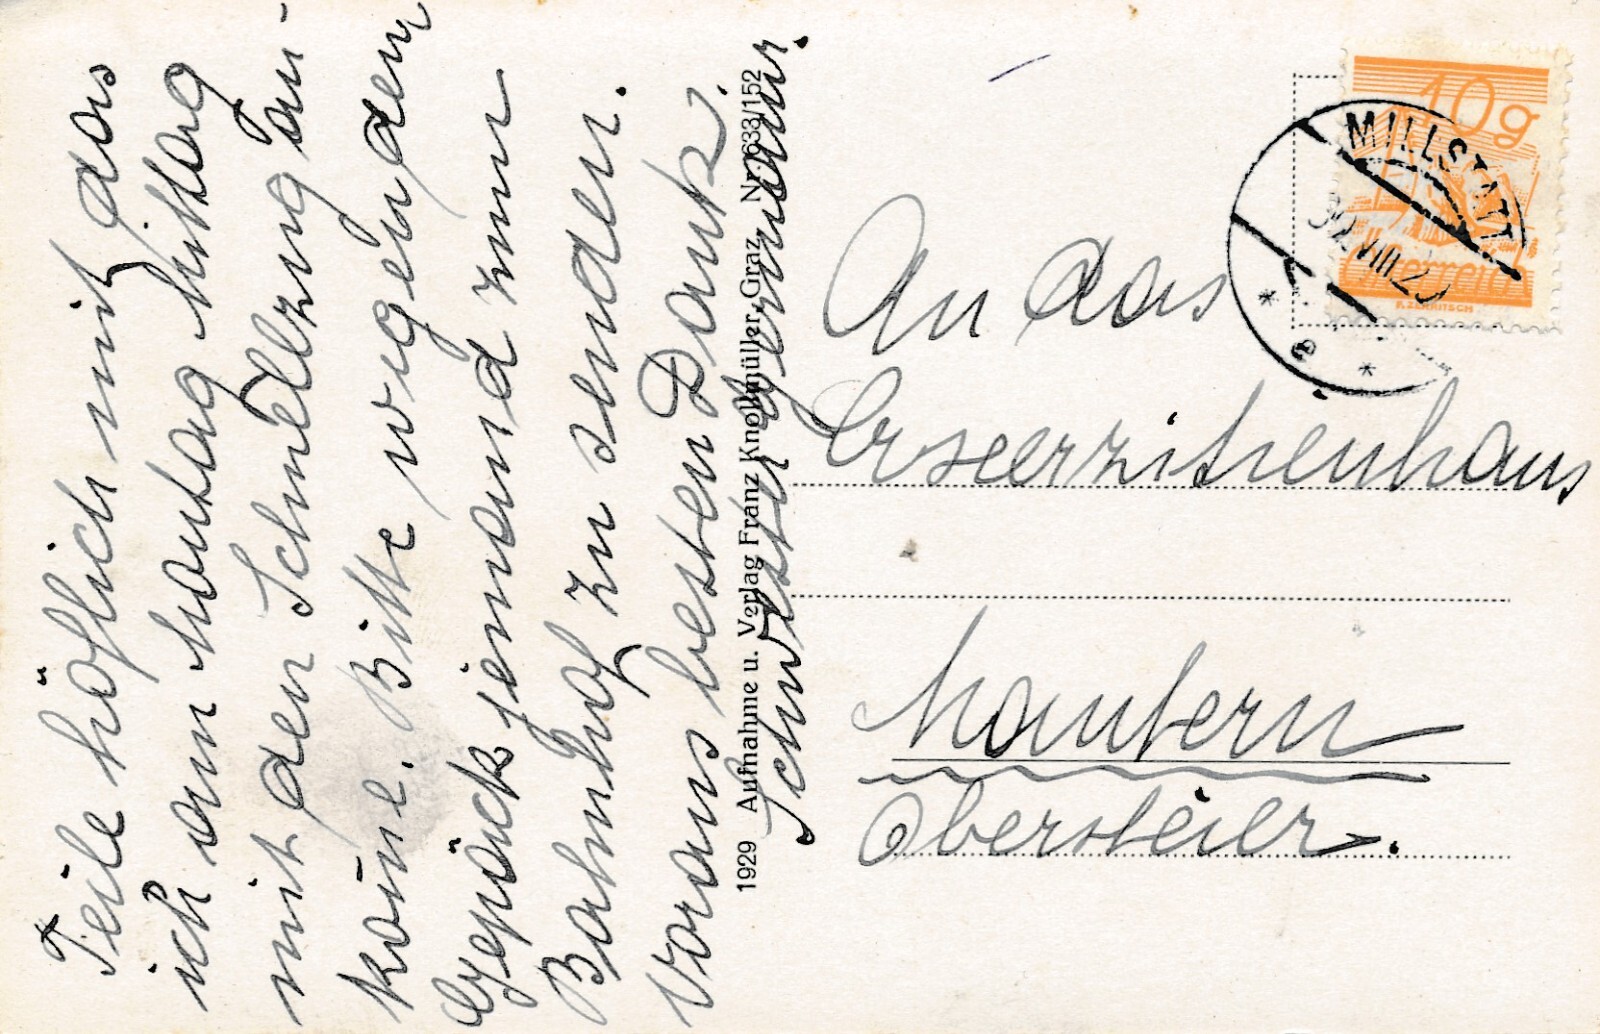 Teile höflich mit das
ich am Montag Mittag
mit den Schnellzug an-
kome. Bitte wegen dem
Gepäck jemand zum
Bahnhof zu senden.
Voraus besten Dank.
Schwester
1929 Aufnahme u. Verlag Franz Knollmüller, Graz Nr. 633/152
An das
Exserzitienhaus
Mautern
Obersteier.
10g
Österreich
MILLSTATT
VIII
* e *